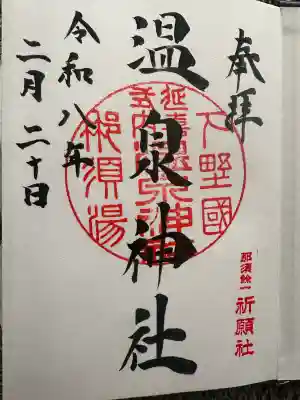 奉拝
下野國
延喜
式内
那須湯
那須餘一
祈願社
温泉神社
令和八年
二月二十日